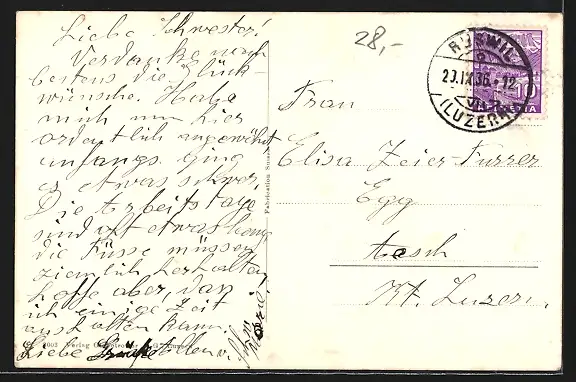 Liebe Schwester!
Verdanke noch
bestens die Glück-
wünsche. Habe
mich nun hier
ordentlich angewöhnt
anfangs ging
es etwas schwer,
Die Arbeitstage
sind oft etwas lang
die Füsse müssen
ziemlich herhalten,
hoffe aber, dass
ich einige Zeit
aushalten kann.
Liebe
28,-
RUSWIL
20.IX.36.-12
(LUZERN)
10
HELVETIA
Frau
Elisa Zeier-Furrer
Egg
Aesch
Kt. Luzern.
Fabrication Suisse
Verlag